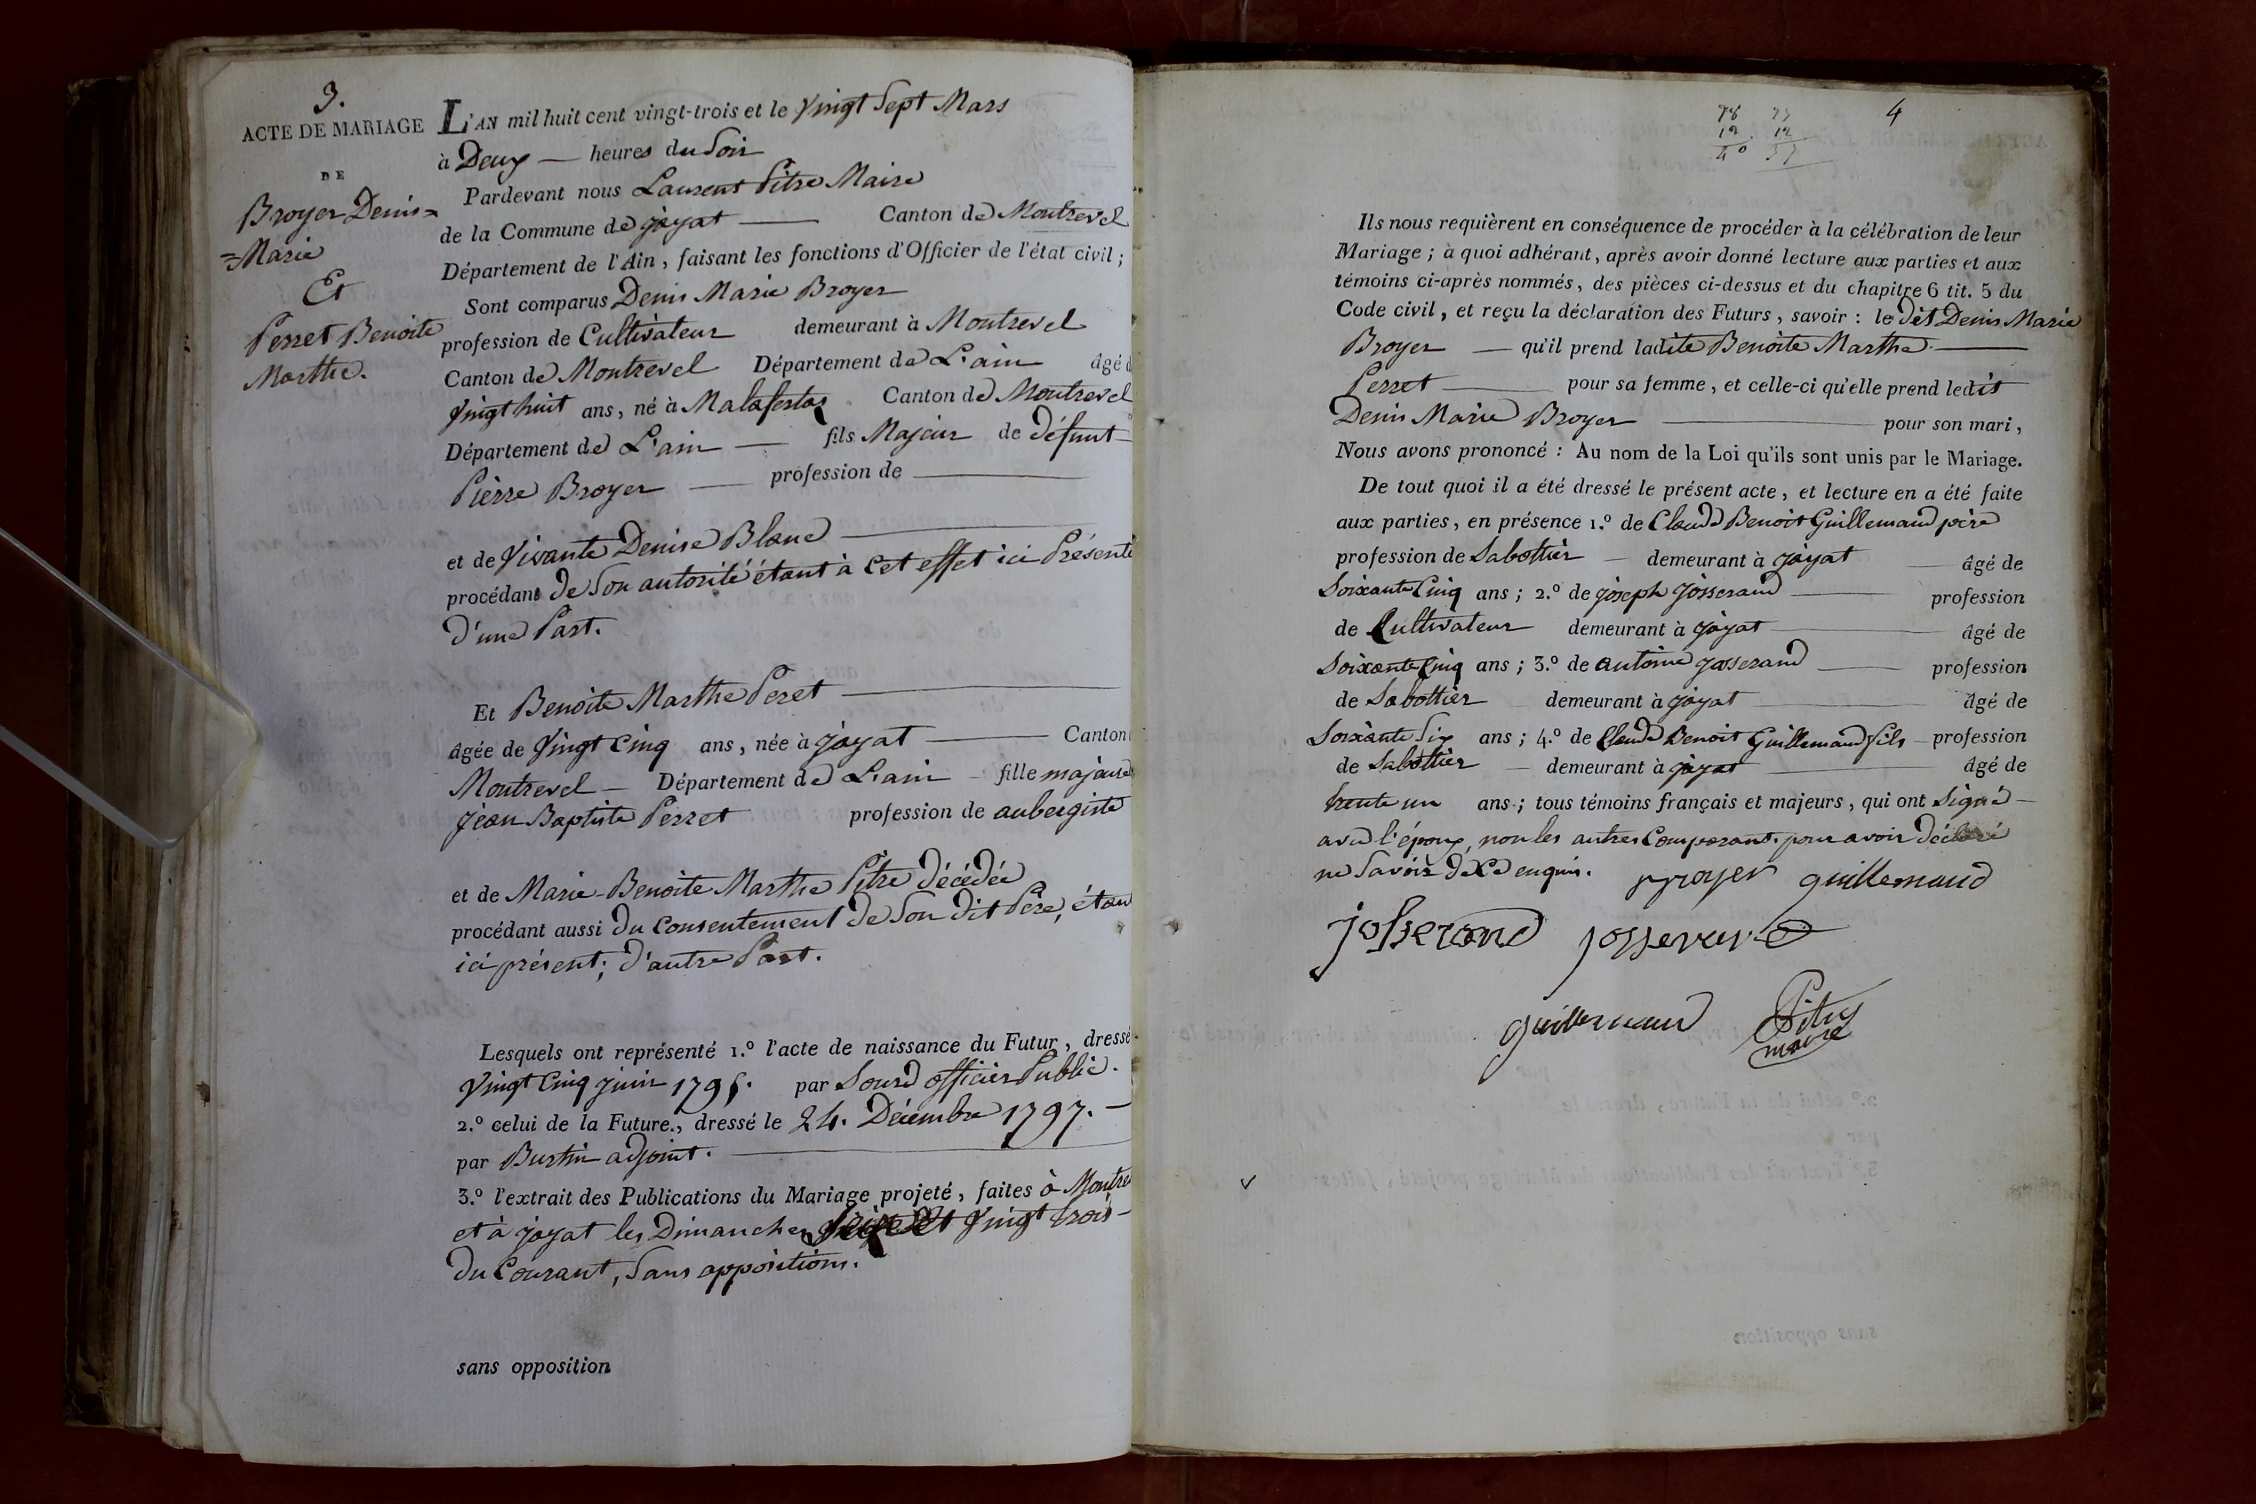 3.
ACTE DE MARIAGE
DE
Broyer Denis=
=Marie
Et
Perret Benoite
Marthe.
L'AN mil huit cent vingt-trois et le vingt Sept Mars
à Deux — heures du Soir
Pardevant nous Laurent Pitre Maire
de la Commune de jayat — Canton de Montrevel
Département de l'Ain, faisant les fonctions d'Officier de l'état civil ;
Sont comparus Denis Marie Broyer
profession de Cultivateur demeurant à Montrevel
Canton de Montrevel Département de L'ain âgé d
vingt huit ans, né à Malafertaz Canton de Montrevel
Département de L'ain — fils Majeur de défunt
Pièrre Broyer — profession de —
et de vivante Denise Blanc —
procédant de Son autorité étant à cet effet ici Présente
d'une Part.
Et Benoite Marthe Peret —
âgée de vingt Cinq ans, née à jayat — Canton
Montrevel — Département de L'ain — fille majeure
jean Baptiste Perret profession de aubergiste
et de Marie-Benoite Marthe Pitre décédée
procédant aussi du Consentement de Son dit Père, étan
ici présent; d'autre Part.
Lesquels ont représenté 1.º l'acte de naissance du Futur, dressé
vingt Cinq juin 1795. par Sourd officier Public.
2.º celui de la Future., dressé le 24. Décembre 1797. —
par Burtin adjoint. —
3.º l'extrait des Publications du Mariage projeté, faites à Montre
et à jayat les Dimanches Seize Et vingt trois —
du Courant, Sans oppositions.
sans opposition
78 93
12. 12
40 37
4
Ils nous requièrent en conséquence de procéder à la célébration de leur
Mariage ; à quoi adhérant, après avoir donné lecture aux parties et aux
témoins ci-après nommés, des pièces ci-dessus et du chapitre 6 tit. 5 du
Code civil, et reçu la déclaration des Futurs, savoir : le dit Denis Marie
Broyer — qu'il prend ladite Benoite Marthe —
Perret — pour sa femme, et celle-ci qu'elle prend ledit
Denis Marie Broyer — pour son mari,
Nous avons prononcé : Au nom de la Loi qu'ils sont unis par le Mariage.
De tout quoi il a été dressé le présent acte, et lecture en a été faite
aux parties, en présence 1.º de Claude Benoit Guillemaud père
profession de Sabottier — demeurant à jayat — âgé de
Soixante Cinq ans ; 2.º de joseph josserand — profession
de Cultivateur demeurant à jayat — âgé de
Soixante Cinq ans ; 3.º de antoine josserand — profession
de Sabottier demeurant à jayat — âgé de
Soixante Six ans ; 4.º de Claude Benoit Guillemaud fils — profession
de Sabottier — demeurant à jayat — âgé de
trente un ans ; tous témoins français et majeurs, qui ont Signé —
avec l'époux, non les autres Comparants pour avoir déclaré
ne Savoir de Ce enquis. Broyer guillemaud
josserand josserand
guillemaud Pitre
maire